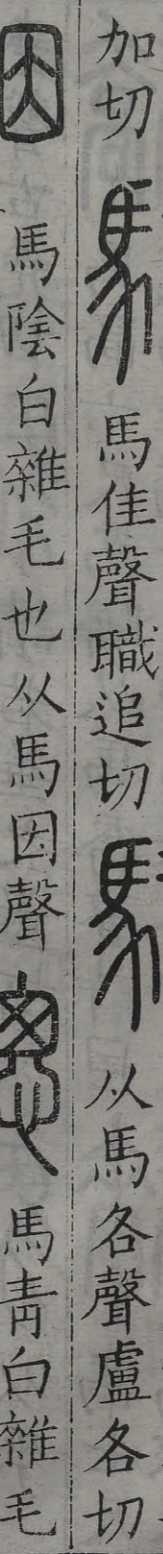 加切 馬 馬佳聲職追切 馬 从馬各聲盧各切
因 馬陰白雜毛也从馬因聲 悤 馬青白雜毛